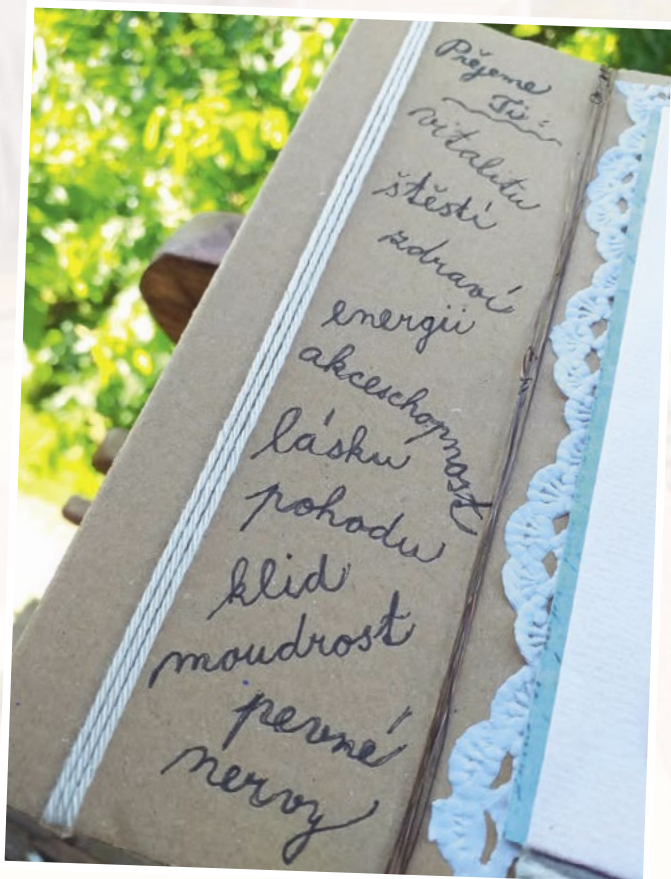 Přejeme
Ti:
vitalitu
štěstí
zdraví
energii
akceschopnost
lásku
pohodu
klid
moudrost
pevné
nervy